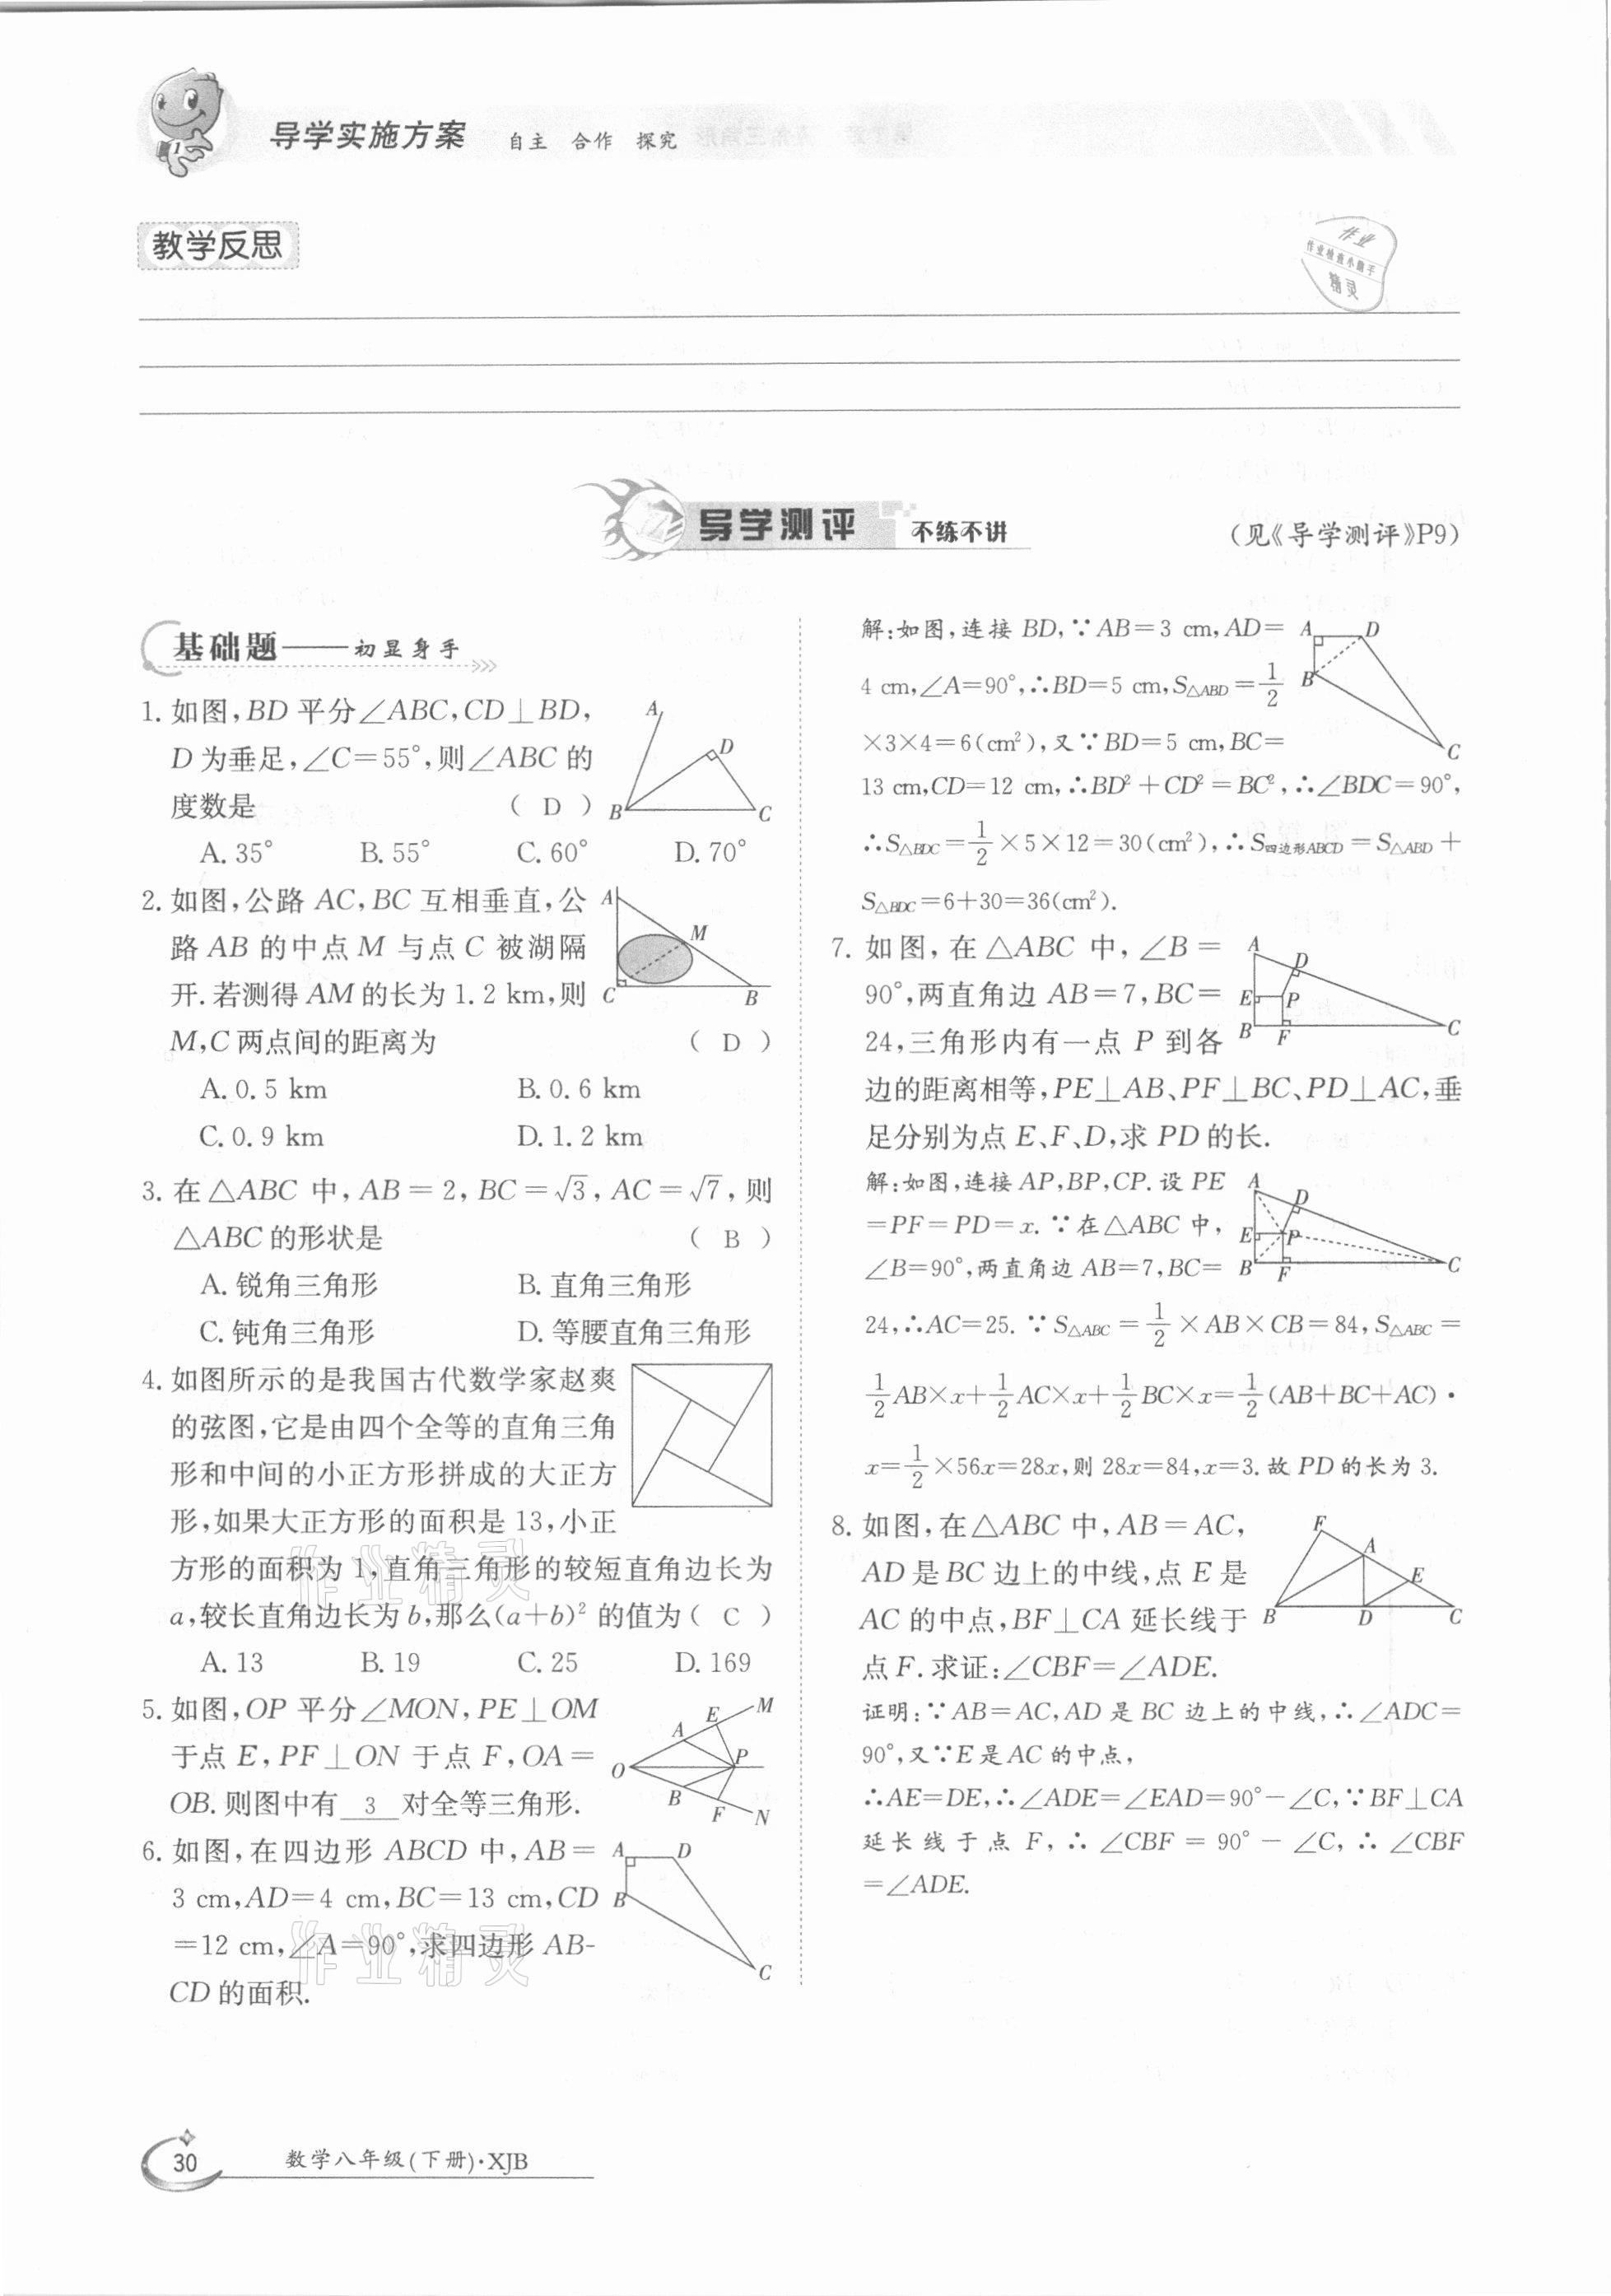 导学实施方案 自主 合作 探究
教学反思
作业
作业检查小助手
精灵
导学测评 不练不讲
(见《导学测评》P9)
基础题——初显身手
1. 如图,BD 平分∠ABC,CD⊥BD,
D 为垂足,∠C=55°,则∠ABC 的
度数是 ( D )
A. 35° B. 55° C. 60° D. 70°
A
D
B
C
2. 如图,公路 AC,BC 互相垂直,公
路 AB 的中点 M 与点 C 被湖隔
开. 若测得 AM 的长为 1. 2 km,则
M,C 两点间的距离为 ( D )
A. 0. 5 km B. 0. 6 km
C. 0. 9 km D. 1. 2 km
A
M
C
B
3. 在△ABC 中,AB=2,BC=√3,AC=√7,则
△ABC 的形状是 ( B )
A. 锐角三角形 B. 直角三角形
C. 钝角三角形 D. 等腰直角三角形
4. 如图所示的是我国古代数学家赵爽
的弦图,它是由四个全等的直角三角
形和中间的小正方形拼成的大正方
形,如果大正方形的面积是 13,小正
方形的面积为 1,直角三角形的较短直角边长为
a,较长直角边长为 b,那么(a+b)² 的值为( C )
A. 13 B. 19 C. 25 D. 169
5. 如图,OP 平分∠MON,PE⊥OM
于点 E,PF⊥ON 于点 F,OA=
OB. 则图中有 3 对全等三角形.
M
E
A
P
O
B
F
N
6. 如图,在四边形 ABCD 中,AB=
3 cm,AD=4 cm,BC=13 cm,CD
=12 cm,∠A=90°,求四边形 AB-
CD 的面积.
A
D
B
C
作业精灵
作业精灵
解:如图,连接 BD,∵AB=3 cm,AD=
4 cm,∠A=90°,∴BD=5 cm,S△ABD=1/2
×3×4=6(cm²),又∵BD=5 cm,BC=
13 cm,CD=12 cm,∴BD²+CD²=BC²,∴∠BDC=90°,
∴S△BDC=1/2×5×12=30(cm²),∴S四边形ABCD=S△ABD+
S△BDC=6+30=36(cm²).
A
D
B
C
7. 如图,在△ABC 中,∠B=
90°,两直角边 AB=7,BC=
24,三角形内有一点 P 到各
边的距离相等,PE⊥AB、PF⊥BC、PD⊥AC,垂
足分别为点 E、F、D,求 PD 的长.
A
D
E
P
B
F
C
解:如图,连接 AP,BP,CP. 设 PE
=PF=PD=x. ∵在△ABC 中,
∠B=90°,两直角边 AB=7,BC=
24,∴AC=25. ∵S△ABC=1/2×AB×CB=84,S△ABC=
1/2AB×x+1/2AC×x+1/2BC×x=1/2(AB+BC+AC)·
x=1/2×56x=28x,则 28x=84,x=3. 故 PD 的长为 3.
A
D
E
P
B
F
C
8. 如图,在△ABC 中,AB=AC,
AD 是 BC 边上的中线,点 E 是
AC 的中点,BF⊥CA 延长线于
点 F. 求证:∠CBF=∠ADE.
F
A
E
B
D
C
证明:∵AB=AC,AD 是 BC 边上的中线,∴∠ADC=
90°,又∵E 是 AC 的中点,
∴AE=DE,∴∠ADE=∠EAD=90°-∠C,∵BF⊥CA
延长线于点 F,∴∠CBF=90°-∠C,∴∠CBF
=∠ADE.
30 数学八年级(下册)·XJB